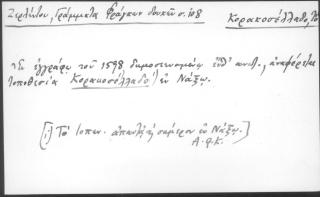 Ζερλέντου, Γράμματα Φράγκων δουκῶν σ. 108
Κορακοσέλλαδο, τὸ
Ἐν ἐγγράφῳ τοῦ 1598 δημοσιευομένῳ ἀναφέρεται
τοποθεσία Κορακοσέλλαδο ἐν Νάξῳ.
[Τὸ τοπων. ἀπαντᾷ καὶ σήμερον ἐν Νάξῳ.]